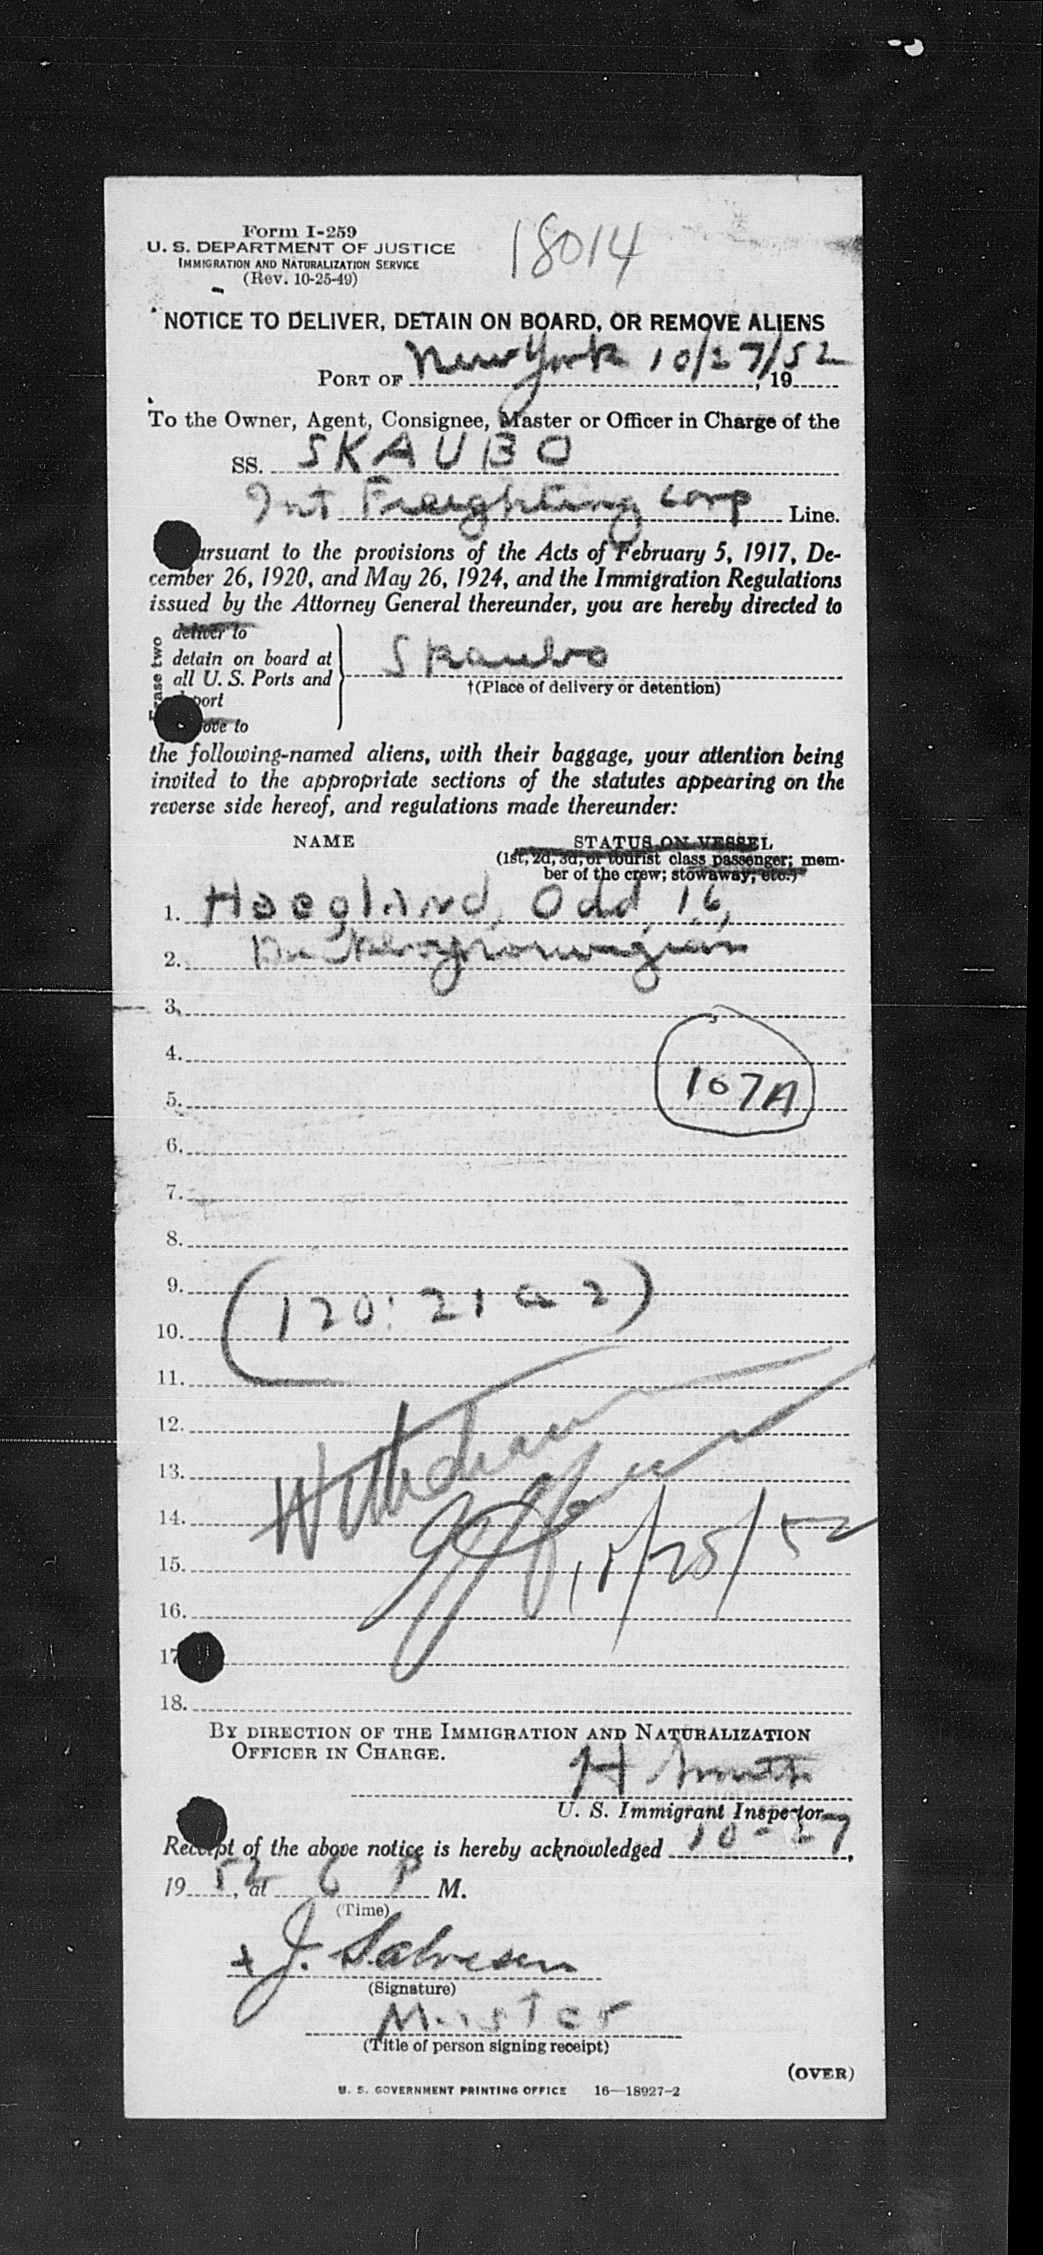 Form I-259
U. S. DEPARTMENT OF JUSTICE
IMMIGRATION AND NATURALIZATION SERVICE
(Rev. 10-25-49)
18014
NOTICE TO DELIVER, DETAIN ON BOARD, OR REMOVE ALIENS
PORT OF New York 10/27/52, 19
To the Owner, Agent, Consignee, Master or Officer in Charge of the
SS. SKAUBO
Int Freighting Corp Line.
ursuant to the provisions of the Acts of February 5, 1917, De-
cember 26, 1920, and May 26, 1924, and the Immigration Regulations
issued by the Attorney General thereunder, you are hereby directed to
deliver to
detain on board at
all U. S. Ports and
port
ove to
ase two
Skaubo
†(Place of delivery or detention)
the following-named aliens, with their baggage, your attention being
invited to the appropriate sections of the statutes appearing on the
reverse side hereof, and regulations made thereunder:
NAME
STATUS ON VESSEL
(1st, 2d, 3d, or tourist class passenger; mem-
ber of the crew; stowaway, etc.)
1. Hoegland, Odd, 16,
2. Norwegian
3.
4.
5.
107A
6.
7.
8.
9.
10.
(120: 21 a 2)
11.
12.
13.
Withdrawn
14.
15.
/28/52
16.
17
18.
BY DIRECTION OF THE IMMIGRATION AND NATURALIZATION
OFFICER IN CHARGE.
H Smith
U. S. Immigrant Inspector
Receipt of the above notice is hereby acknowledged 10-27,
19 52, at 6 P M.
(Time)
+ J. Salvesen
(Signature)
Master
(Title of person signing receipt)
(OVER)
U. S. GOVERNMENT PRINTING OFFICE 16—18927-2